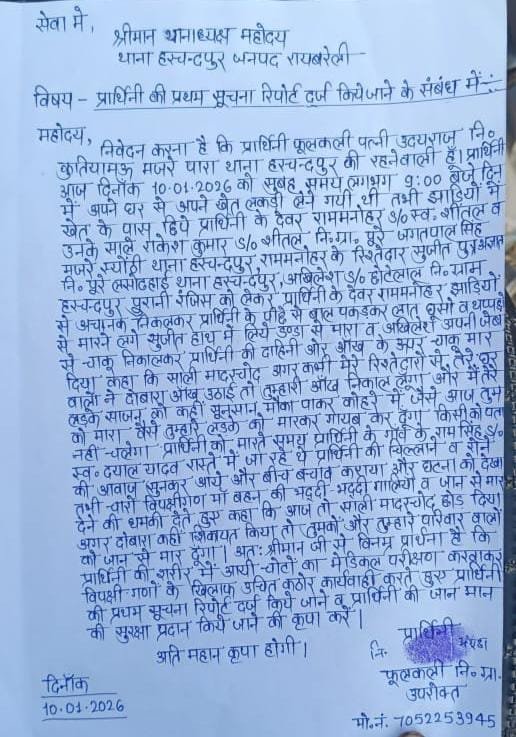 सेवा मे,
श्रीमान थानाध्यक्ष महोदय
थाना हरचन्दपुर जनपद रायबरेली
विषय - प्रार्थिनी की प्रथम सूचना रिपोर्ट दर्ज किये जाने के संबंध में :-
महोदय,
निवेदन करना है कि प्रार्थिनी फूलकली पत्नी उदयराज नि०
कुतियामऊ मजरे पारा थाना हरचन्दपुर की रहनेवाली हूँ। प्रार्थिनी
आज दिनाँक 10.01.2026 को सुबह समय लगभग 9:00 बजे दिन
में अपने घर से अपने खेत लकड़ी लेने गयी थी तभी झाडियों में
खेत के पास छिपे प्रार्थिनी के देवर राममनोहर S/o स्व० शीतल व
उनके साले राकेश कुमार S/o शीतल नि.ग्रा. पूरे जगतपाल सिंह
मजरे थाना हरचन्दपुर, राममनोहर के रिश्तेदार सुजीत पुत्र अज्ञात
नि० पूरे थाना हरचन्दपुर, अखिलेश S/o छोटेलाल नि० ग्राम
हरचन्दपुर पुरानी रंजिस को लेकर प्रार्थिनी के देवर राममनोहर झाडियों
से अचानक निकलकर प्रार्थिनी के पीछे से बाल पकडकर लात घूसो व थप्पडो
से मारने लगे सुजीत हाथ में लिये डण्डा से मारा व अखिलेश अपनी जेब
से चाकू निकालकर प्रार्थिनी की दाहिनी ओर आँख के ऊपर चाकू मार
दिया कहा कि साली मादरचोद अगर कभी मेरे रिश्तेदारो से तेरे घर
वालो ने दोबारा आँख उठाई तो तुम्हारी आँख निकाल लूंगा और मैं तेरे
लडके साजन को कहीं सूनसान मौका पाकर कोहरे में जैसे आज तुम
को मारा वैसे तुम्हारे लडके को मारकर गायब कर दूंगा किसी को पता
नहीं चलेगा। प्रार्थिनी को मारते समय प्रार्थिनी के गाँव के रामसिंह S/o
स्व० दयाल यादव रास्ते में जा रहे थे प्रार्थिनी की चिल्लाने व रोने
की आवाज सुनकर आये और बीच बचाव कराया और घटना को देखा
तभी चारो विपक्षीगण माँ बहन की भद्दी भद्दी गालियाँ व जान से मार
देने की धमकी देते हुए कहा कि आज तो साली मादरचोद छोड दिया
अगर दोबारा कहीं शिकायत किया तो तुमको और तुम्हारे परिवार वालो
को जान से मार दूंगा। अतः श्रीमान जी से विनम्र प्रार्थना है कि
प्रार्थिनी की शरीर में आयी चोटो का मेडिकल परीक्षण करवाकर
विपक्षी गणो के खिलाफ उचित कठोर कार्यवाही करते हुए प्रार्थिनी
की प्रथम सूचना रिपोर्ट दर्ज किये जाने व प्रार्थिनी की जान मान
की सुरक्षा प्रदान किये जाने की कृपा करें।
अति महान कृपा होगी।
प्रार्थिनी
नि. अंगूठा
फूलकली नि० ग्रा.
उपरोक्त
मो.नं. 7052253945
दिनाँक
10.01.2026